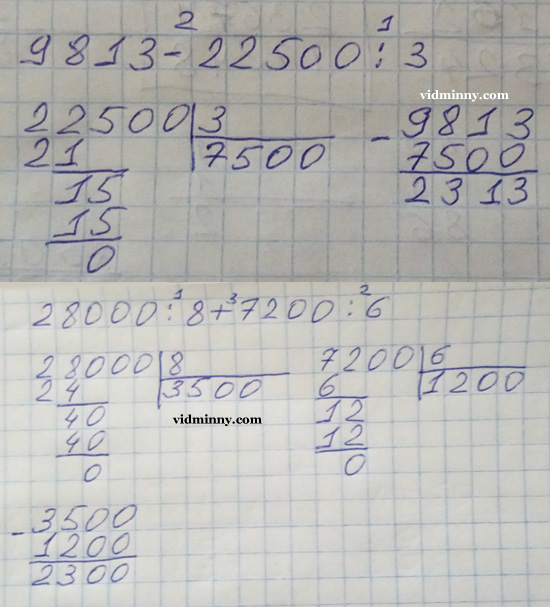 2 1
9813-22500:3
vidminny.com
22500 3 - 9813
21 7500 7500
15 2313
15
0
1 3 2
28000:8+7200:6
28000 8 7200 6
24 3500 6 1200
40 vidminny.com 12
40 12
0 0
- 3500
1200
2300